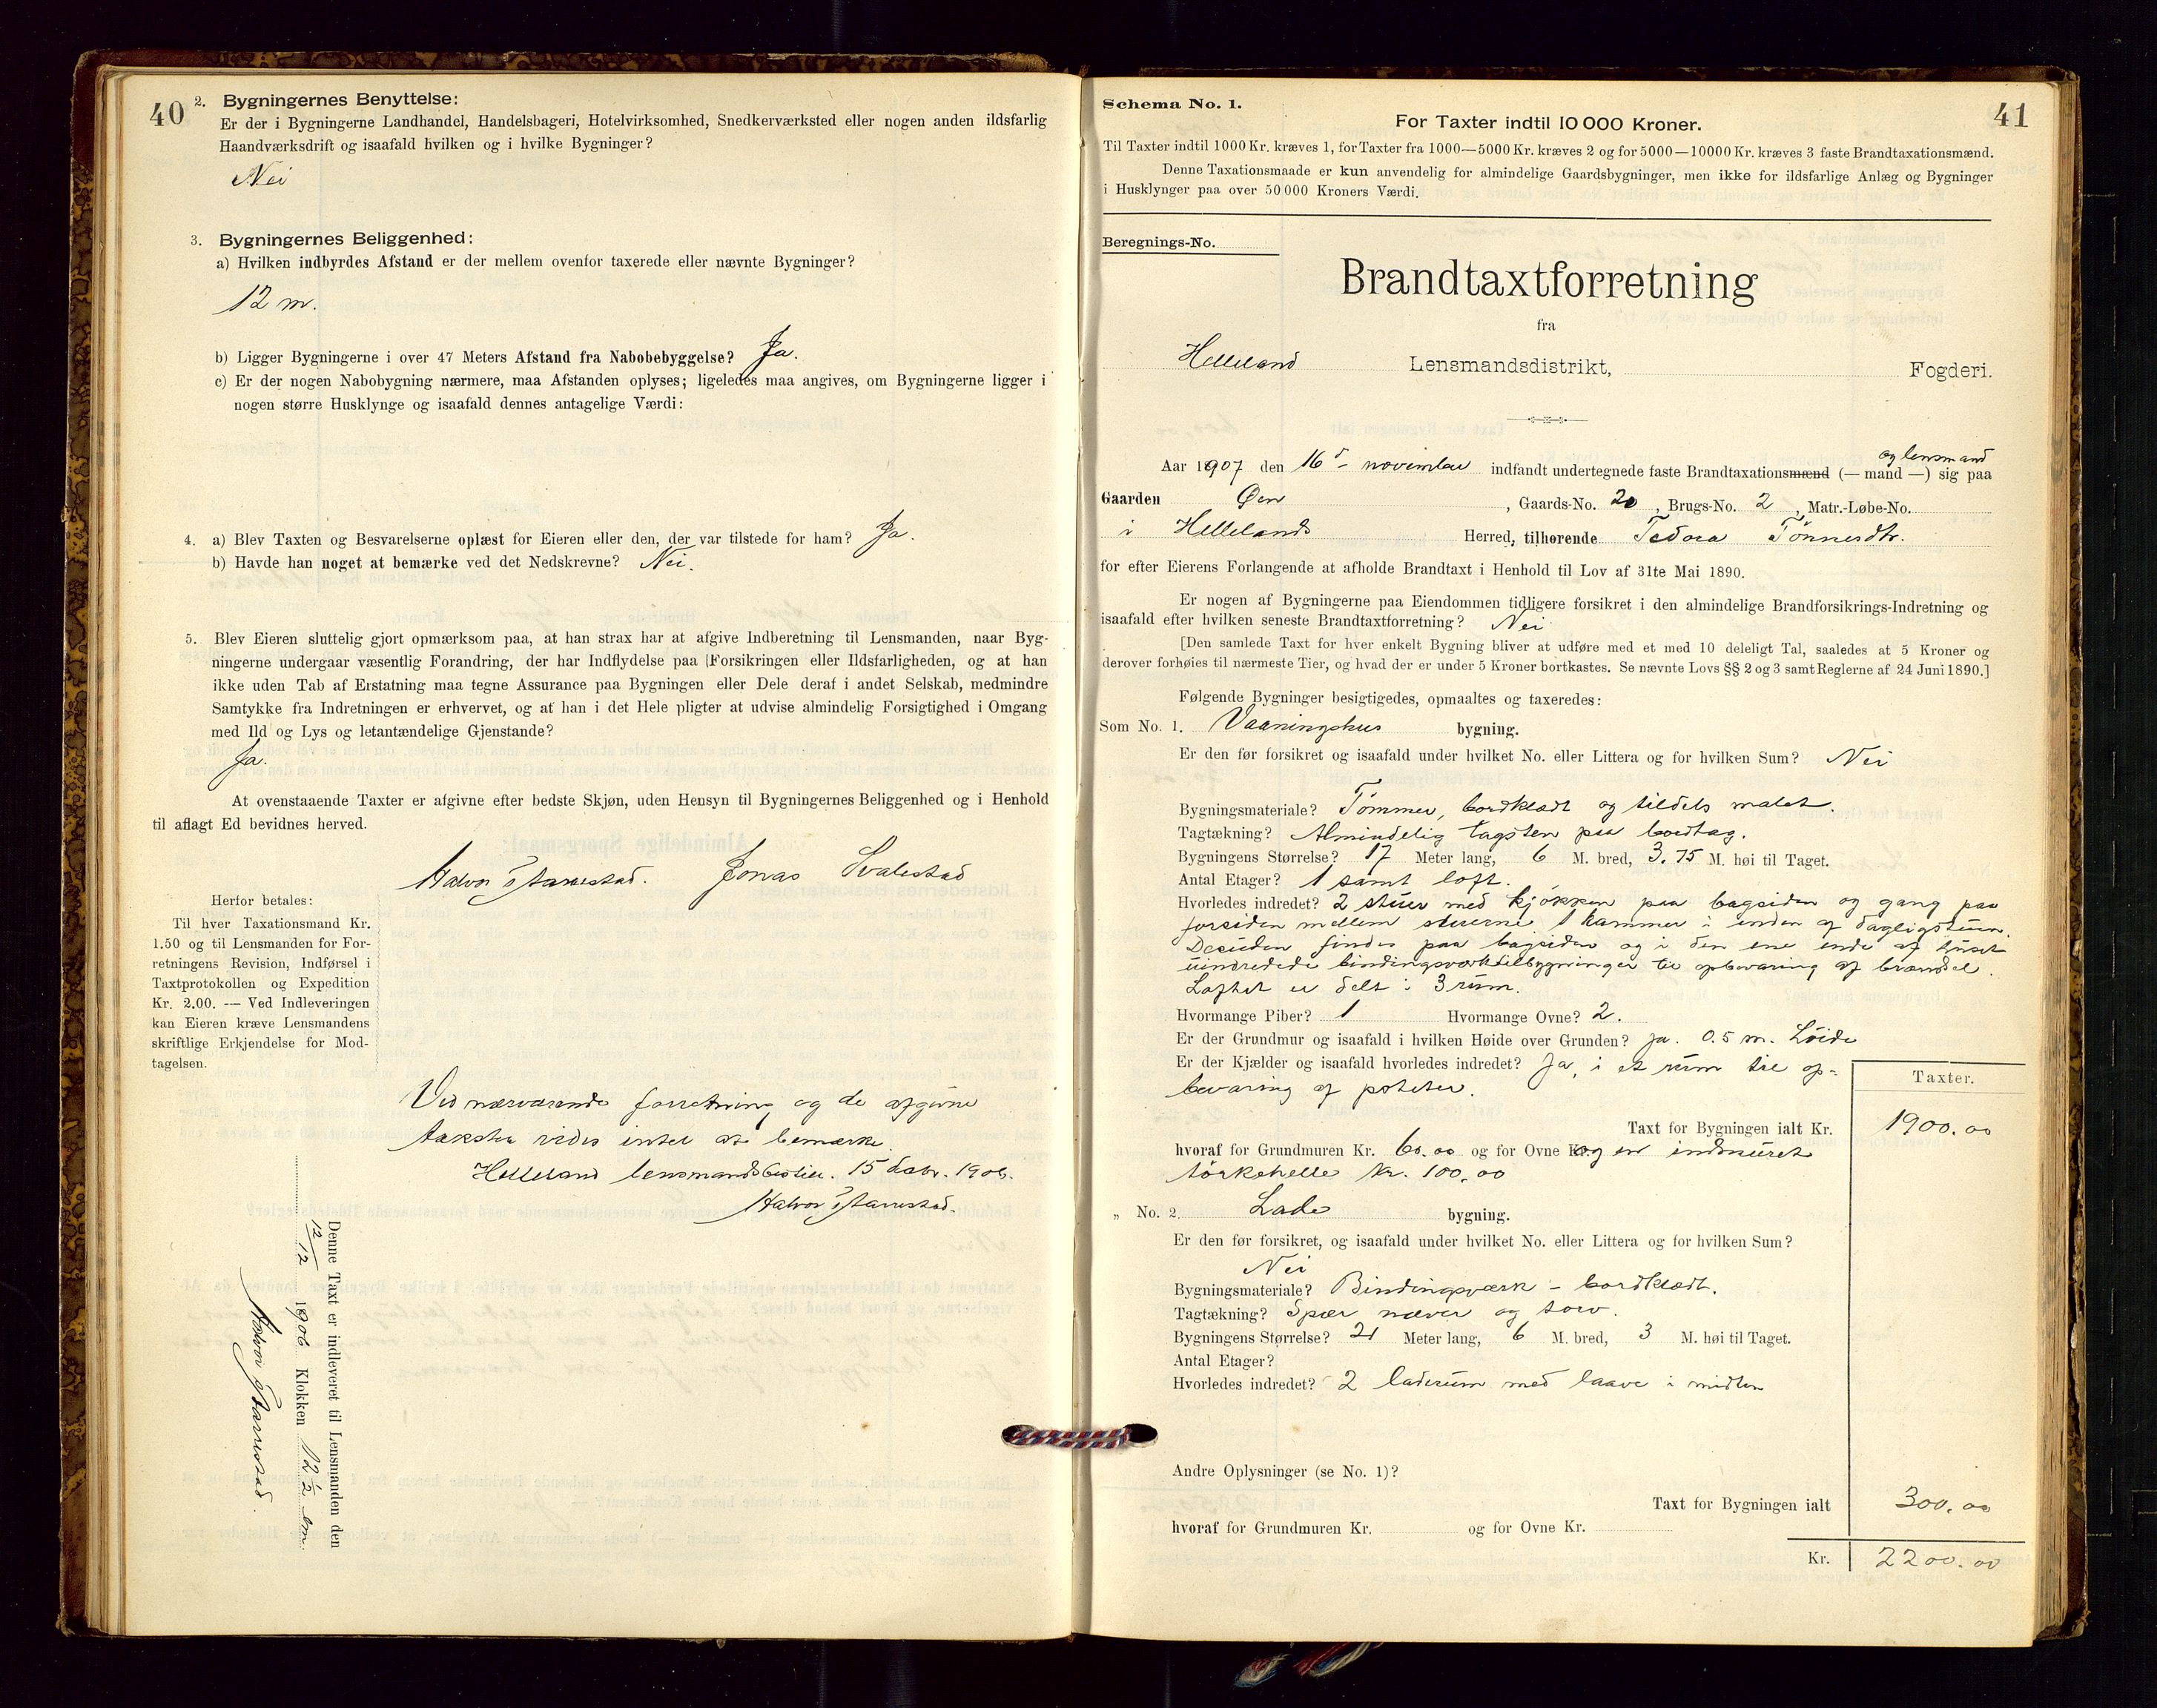 40
2. Bygningernes Benyttelse:
Er der i Bygningerne Landhandel, Handelsbageri, Hotelvirksomhed, Snedkerværksted eller nogen anden ildsfarlig
Haandværksdrift og isaafald hvilken og i hvilke Bygninger?
Nei
3. Bygningernes Beliggenhed:
a) Hvilken indbyrdes Afstand er der mellem ovenfor taxerede eller nævnte Bygninger?
12 m.
b) Ligger Bygningerne i over 47 Meters Afstand fra Nabobebyggelse? Ja.
c) Er der nogen Nabobygning nærmere, maa Afstanden oplyses; ligeledes maa angives, om Bygningerne ligger i
nogen større Husklynge og isaafald dennes antagelige Værdi:
4. a) Blev Taxten og Besvarelserne oplæst for Eieren eller den, der var tilstede for ham? Ja.
b) Havde han noget at bemærke ved det Nedskrevne? Nei.
5. Blev Eieren sluttelig gjort opmærksom paa, at han strax har at afgive Indberetning til Lensmanden, naar Byg-
ningerne undergaar væsentlig Forandring, der har Indflydelse paa Forsikringen eller Ildsfarligheden, og at han
ikke uden Tab af Erstatning maa tegne Assurance paa Bygningen eller Dele deraf i andet Selskab, medmindre
Samtykke fra Indretningen er erhvervet, og at han i det Hele pligter at udvise almindelig Forsigtighed i Omgang
med Ild og Lys og letantændelige Gjenstande?
Ja.
At ovenstaaende Taxter er afgivne efter bedste Skjøn, uden Hensyn til Bygningernes Beliggenhed og i Henhold
til aflagt Ed bevidnes herved.
Halvor Aarrestad. Jonas Svalestad
Herfor betales:
Til hver Taxationsmand Kr.
1.50 og til Lensmanden for For-
retningens Revision, Indførsel i
Taxtprotokollen og Expedition
Kr. 2.00. — Ved Indleveringen
kan Eieren kræve Lensmandens
skriftlige Erkjendelse for Mod-
tagelsen.
Ved nærværende forretning og de afgivne
takster vides intet at bemærke.
Helleland lensmandsbestill. 15 debr. 1906.
Halvor Aarrestad.
Denne Taxt er indleveret til Lensmanden den
12/12 1906 Klokken 12 1/2 em.
Halvor Aarrestad.
Schema No. 1.
41
For Taxter indtil 10 000 Kroner.
Til Taxter indtil 1000 Kr. kræves 1, for Taxter fra 1000—5000 Kr. kræves 2 og for 5000—10000 Kr. kræves 3 faste Brandtaxationsmænd.
Denne Taxationsmaade er kun anvendelig for almindelige Gaardsbygninger, men ikke for ildsfarlige Anlæg og Bygninger
i Husklynger paa over 50 000 Kroners Værdi.
Beregnings-No.
Brandtaxtforretning
fra
Helleland Lensmandsdistrikt, Fogderi.
og lensmand
Aar 1907 den 16d- november indfandt undertegnede faste Brandtaxationsmænd (— mand —) sig paa
Gaarden Øen, Gaards-No. 20, Brugs-No. 2, Matr.-Løbe-No.
i Hellelands Herred, tilhørende Tedora Tönnesdtr.
for efter Eierens Forlangende at afholde Brandtaxt i Henhold til Lov af 31te Mai 1890.
Er nogen af Bygningerne paa Eiendommen tidligere forsikret i den almindelige Brandforsikrings-Indretning og
isaafald efter hvilken seneste Brandtaxtforretning? Nei
[Den samlede Taxt for hver enkelt Bygning bliver at udføre med et med 10 deleligt Tal, saaledes at 5 Kroner og
derover forhøies til nærmeste Tier, og hvad der er under 5 Kroner bortkastes. Se nævnte Lovs §§ 2 og 3 samt Reglerne af 24 Juni 1890.]
Følgende Bygninger besigtigedes, opmaaltes og taxeredes:
Som No. 1. Vaaningshus bygning.
Er den før forsikret og isaafald under hvilket No. eller Littera og for hvilken Sum? Nei
Bygningsmateriale? Tömmer, bordklædt og tildels malet.
Tagtækning? Almindelig tagsten paa bordtag.
Bygningens Størrelse? 17 Meter lang, 6 M. bred, 3.75 M. høi til Taget.
Antal Etager? 1 samt loft.
Hvorledes indredet? 2 stuer med kjøkken paa bagsiden og gang paa
forsiden mellem stuerne 1 kammer i enden af dagligstuen.
Desuden findes paa bagsiden og i den ene ende af huset
uindredede bindingsværktilbygninger til opbevaring af brændsel.
Loftet er delt i 3 rum.
Hvormange Piber? 1 Hvormange Ovne? 2.
Er der Grundmur og isaafald i hvilken Høide over Grunden? Ja. 0.5 m. Höide
Er der Kjælder og isaafald hvorledes indredet? Ja, i et rum til op-
bevaring af poteter.
Taxter.
Taxt for Bygningen ialt Kr. 1900.00
hvoraf for Grundmuren Kr. 60.00 og for Ovne Kr. og en indmuret
törkehelle kr. 100,00
„ No. 2. Lade bygning.
Er den før forsikret, og isaafald under hvilket No. eller Littera og for hvilken Sum?
Nei
Bygningsmateriale? Bindingsværk - bordklædt.
Tagtækning? Spær næver og torv.
Bygningens Størrelse? 21 Meter lang, 6 M. bred, 3 M. høi til Taget.
Antal Etager?
Hvorledes indredet? 2 laderum med laave i midten
Andre Oplysninger (se No. 1)?
Taxt for Bygningen ialt 300.00
hvoraf for Grundmuren Kr. og for Ovne Kr.
Kr. 2200.00